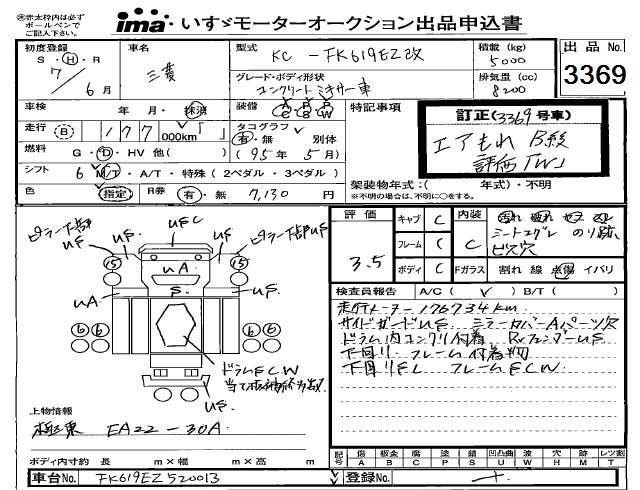 ※赤太枠内は必ず
ボールペンで
ご記入下さい。
ima いすゞモーターオークション出品申込書
初度登録
S・H・R
7/6月
車名
三菱
型式
KC-FK619EZ改
グレード・ボディ形状
コンクリートミキサー車
積載(kg)
5000
排気量(cc)
8200
出品No.
3369
車検 年 月・抹消
装備 A/C P/S P/W
特記事項
訂正(3369号車)
エアもれ B級
評価「W」
走行 (B) 177 000km「 」
タコグラフ
有・無 別体
燃料 G・D・HV 他( )
(95年5月)
シフト 6 M/T・A/T・特殊(2ペダル・3ペダル)
架装物年式:( 年式)・不明
※不明の場合は、不明に○をする。
色 (指定) R券 有・無 7,130円
評価
3.5
キャブ C
フレーム C
ボディ C
内装 C
Fガラス
シートコゲ のり跡
ビス穴
割れ 線 点傷 イバリ
検査員報告 A/C( ) B/T( )
走行メーター176734km
サイドガードUS ミラーカバーAパーツ欠
ドラム内コンクリ付着 RフェンダーUS
下回り フレーム付着物
下回りEL フレームECW
ピラー下部
US
US
USC
US
ピラー下部US
15
15
UA
UA
S
US
6 6
6 6
ドラムECW
US
US
上物情報
極東 EA22-30A
ボディ内寸約 長 m×幅 m×高 m
記号 傷 A 板金 B 腐 C 塗 P 錆 S 凹凸曲 U 波 W 穴 H 無 M レツ割 T
車台No. FK619EZ520013
登録No.